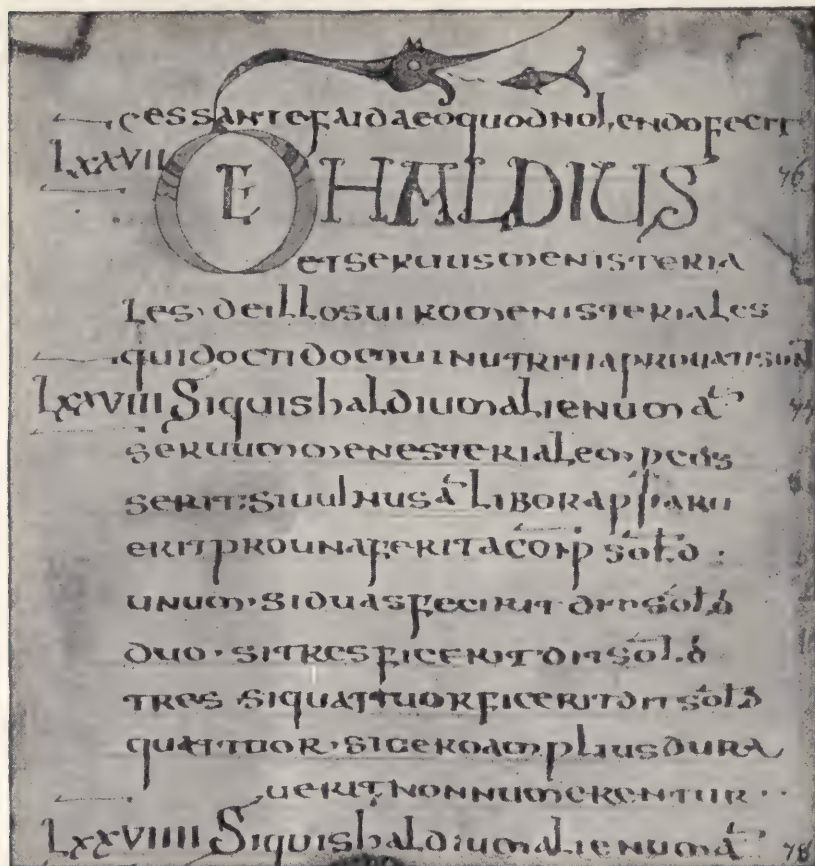 cessante faida eo quod nolendo fecit
LXXVII DE HALDIUS 76
et seruus menisteria
les· de illos uiro menisteriales
qui docti domui nutriti aprouati sun̄
LXXVIII Siquis haldium alienum a̅t 77
seruum menesterialem percus
serit: si uulnus a̅t libor apparu
erit pro una ferita conp sold
unum· si duas fecirit dit sold
duo· si tres ficerit dit sold
tres si quattuor ficerit dit sold
quattuor· si uero amplius dura
uerit non numerentur··
LXXVIIII Siquis haldium alienum a̅t 78